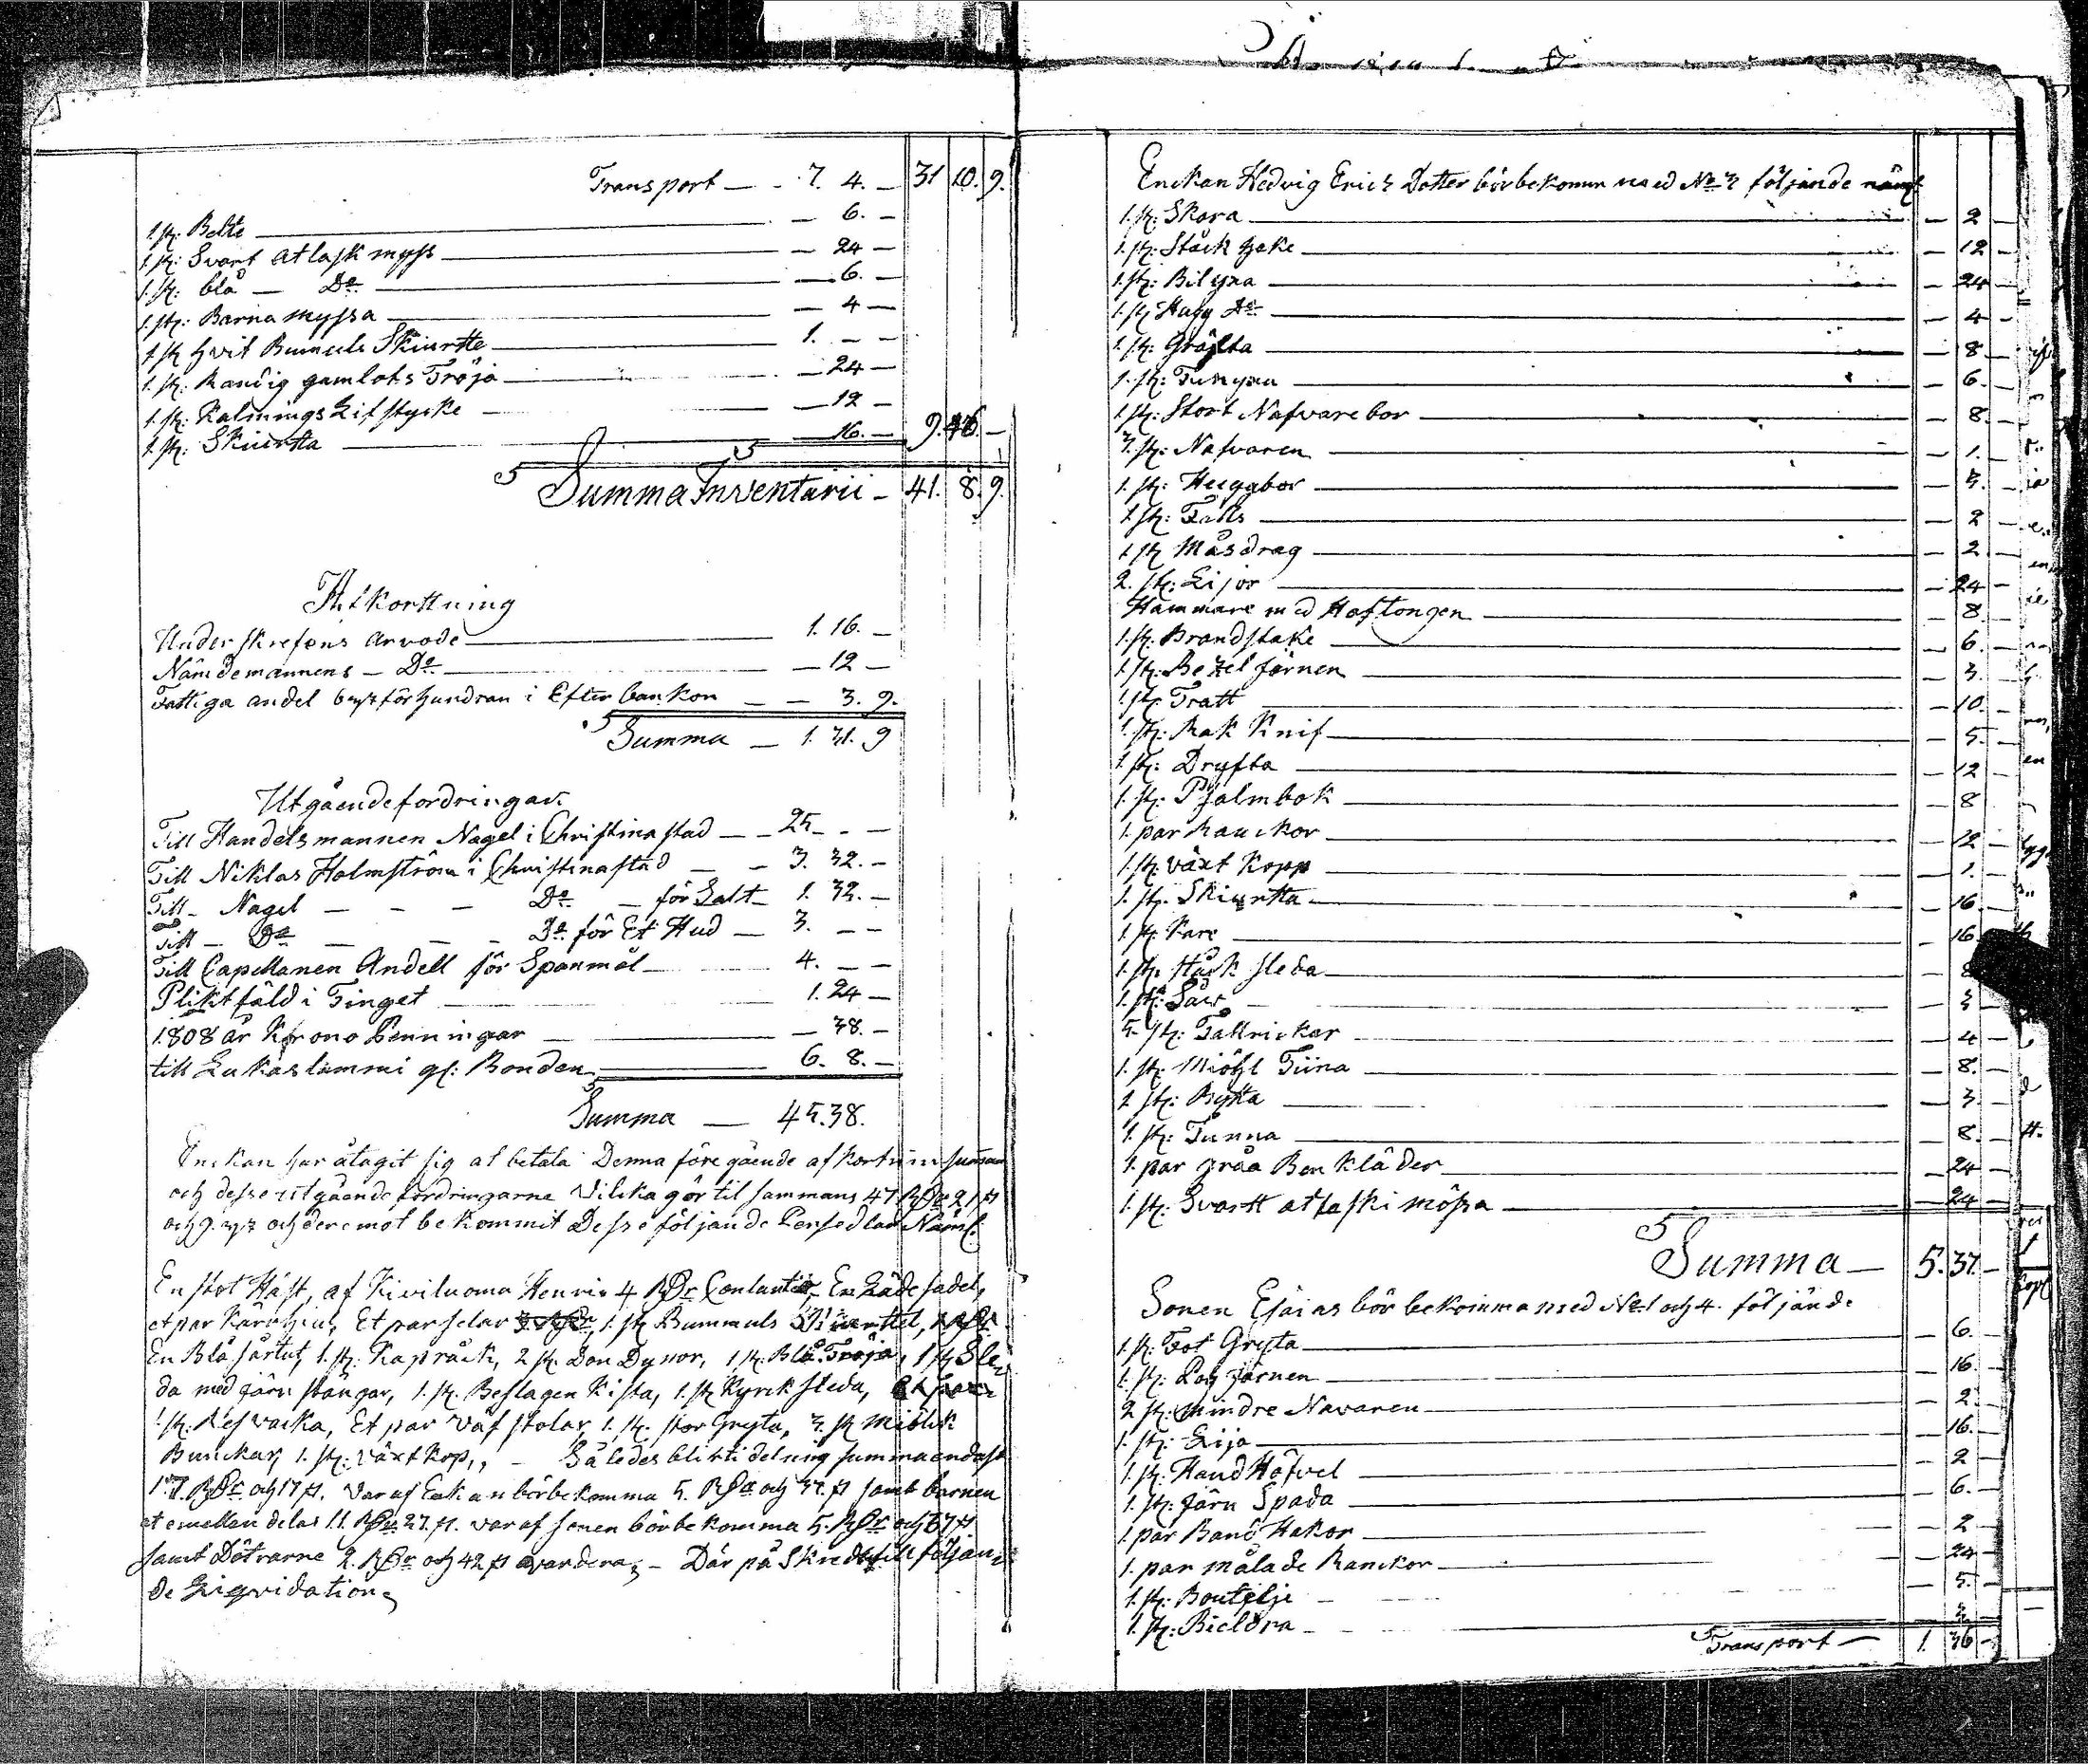 Transport — - 7. 4. — 31 10. 9.
1. st: Belte — 6. —
1. st: Svart atlask myss — 24 —
1. st: blå — Do — 6. —
1. st: Barna myssa — 4 —
1 st hvit Bumuls Skiurtte 1. — —
1. st: Randig gamlots Tröja — 24 —
1. st: Kalmings Lifstycke — 12 —
1. st: Skiursta — 16. — 9. 46. —
Summa Inventarii — 41. 8. 9.
Afkorttning
Underskrefvens arvode 1. 16. —
Nämdemannens — Do — 12 —
Fattiga andel för hundran i Efter bankon — — 3. 9.
Summa — 1. 31. 9
Utgåendefordringar
Till Handelsmannen Nagel i Christinastad — — 25 — —
Till Niklas Holmström i Christinastad — — 3. 32. —
Till — Nagel — — — Do — för Salt — 1. 32. —
Till — Do — — — Do för Et Hud — 3. — —
Till Capellanen Andell för Spanmål 4. — —
Plikt fäld i Tinget 1. 24 —
1808 år Krono Penningar — 38. —
till Lukaslammi gl: Bonden 6. 8. —
Summa — 45. 38.
Enckan har åtagit sig at betala Denna föregående afkortnin summan
och desse utgående fordringarne Vilcka gör til sammans 47 RDr 21 st
och 9. och deremot bekommit Desse följande Persedlar Näml:
En stot Häst, af Kiviluoma Henric 4 RDr En Läde sadel,
et par Kärrhiul, Et par selar 1 st Bummuls
En Blå sårtut, 1. st: Kapråck, 2 st: Don Dynor, 1 st: Blå Tröja, 1 st Sle
da med järn stångar, 1. st. Beslagen Kista, 1. st Kyrck sleda,
1 st. Ref vacka, Et par Väf stolar, 1. st. stor Gryta, 3. st Miölck
Bunckar, 1. st: växt kop,, — Således blir til delning summa endast
17 RDr och 17 st. varaf Enkan bör bekomma 5. RDr och 37. st samt barnen
at emellan delas 11. RDr 27. st. varaf sonen bör bekomma 5. RDr och st
samt Döttrarne 2. RDr och 42 st vardera, — Där på Skredt till följan
de Liqvidation,
Enckan Hedvig Erics Dotter bör bekomm med No 3 följande näml
1. st: Skora — 2 —
1. st: Stäck — 12 —
1. st: Bilyxa — 24 —
1. st Hugg Do — 4 —
1. st: Gräfta — 8 —
1. st: Tunyxa — 6. —
1. st: Stort Nafvare bor — 8. —
3. st: Nafvaren — 1. —
1. st: Huggbor — 3. —
1. st: Falts — 2 —
1 st Måsdrag — 2. —
2. st: Lijor — 24 —
Hammare med Hoftongen — 8. —
1. st: Brandstake — 6. —
1. st: Bezel järnen — 3. —
1. st. Tratt — 10. —
1. st: Rak Knif — 5. —
1. st: Dryfta — 12 —
1. st: Psalmbok — 8
1. par Ranckor — 12 —
1. st: växt Kopp — 1. —
1. st: Skiurtta — 16 —
1 st: Kare — 16
1. st: Stäck sleda —
1. st: Såir — 3
5. st: Tallrickar — 4 —
1. st: Miöhl Tiina — 8. —
1 st: Bytta — 3. —
1. st: Tunna — 8. —
1. par gråa Benkläder — 24 —
1. st: Svartt atlaski mössa — 24 —
Summa — 5. 37. —
Sonen Esaias bör bekomma med No 1 och 4. följande
1. st: Fot Gryta — 6. —
1. st: järnen — 16. —
2 st: mindre Navaren — 2 —
1. st: Lija — 16. —
1. st: Hand Höfvel — 2 —
1. st: järn Spada — 6. —
1. par Band Hakor — 2 —
1. par målade Ranckor — 24 —
1. st: Boutelje — 5. —
1. st: Bieldra — 3
Transport — 1 36 —